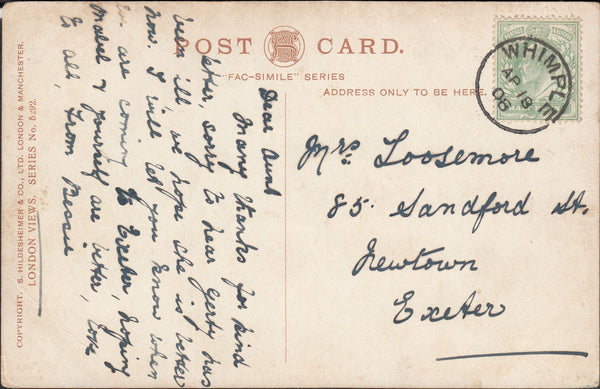 POST CARD.
"FAC-SIMILE" SERIES
ADDRESS ONLY TO BE HERE.
WHIMPLE
AP 18
06
COPYRIGHT. S. HILDESHEIMER & CO., LTD. LONDON & MANCHESTER.
LONDON VIEWS. SERIES No. 5292.
Dear Aunt
Many thanks for kind
letter, sorry to hear Gerty has
been ill we hope she is better
now. I will let you know when
we are coming to Exeter, hoping
Mabel & yourself are better, love
to all, from Bessie
Mrs Loosemore
85. Sandford St.
Newtown
Exeter